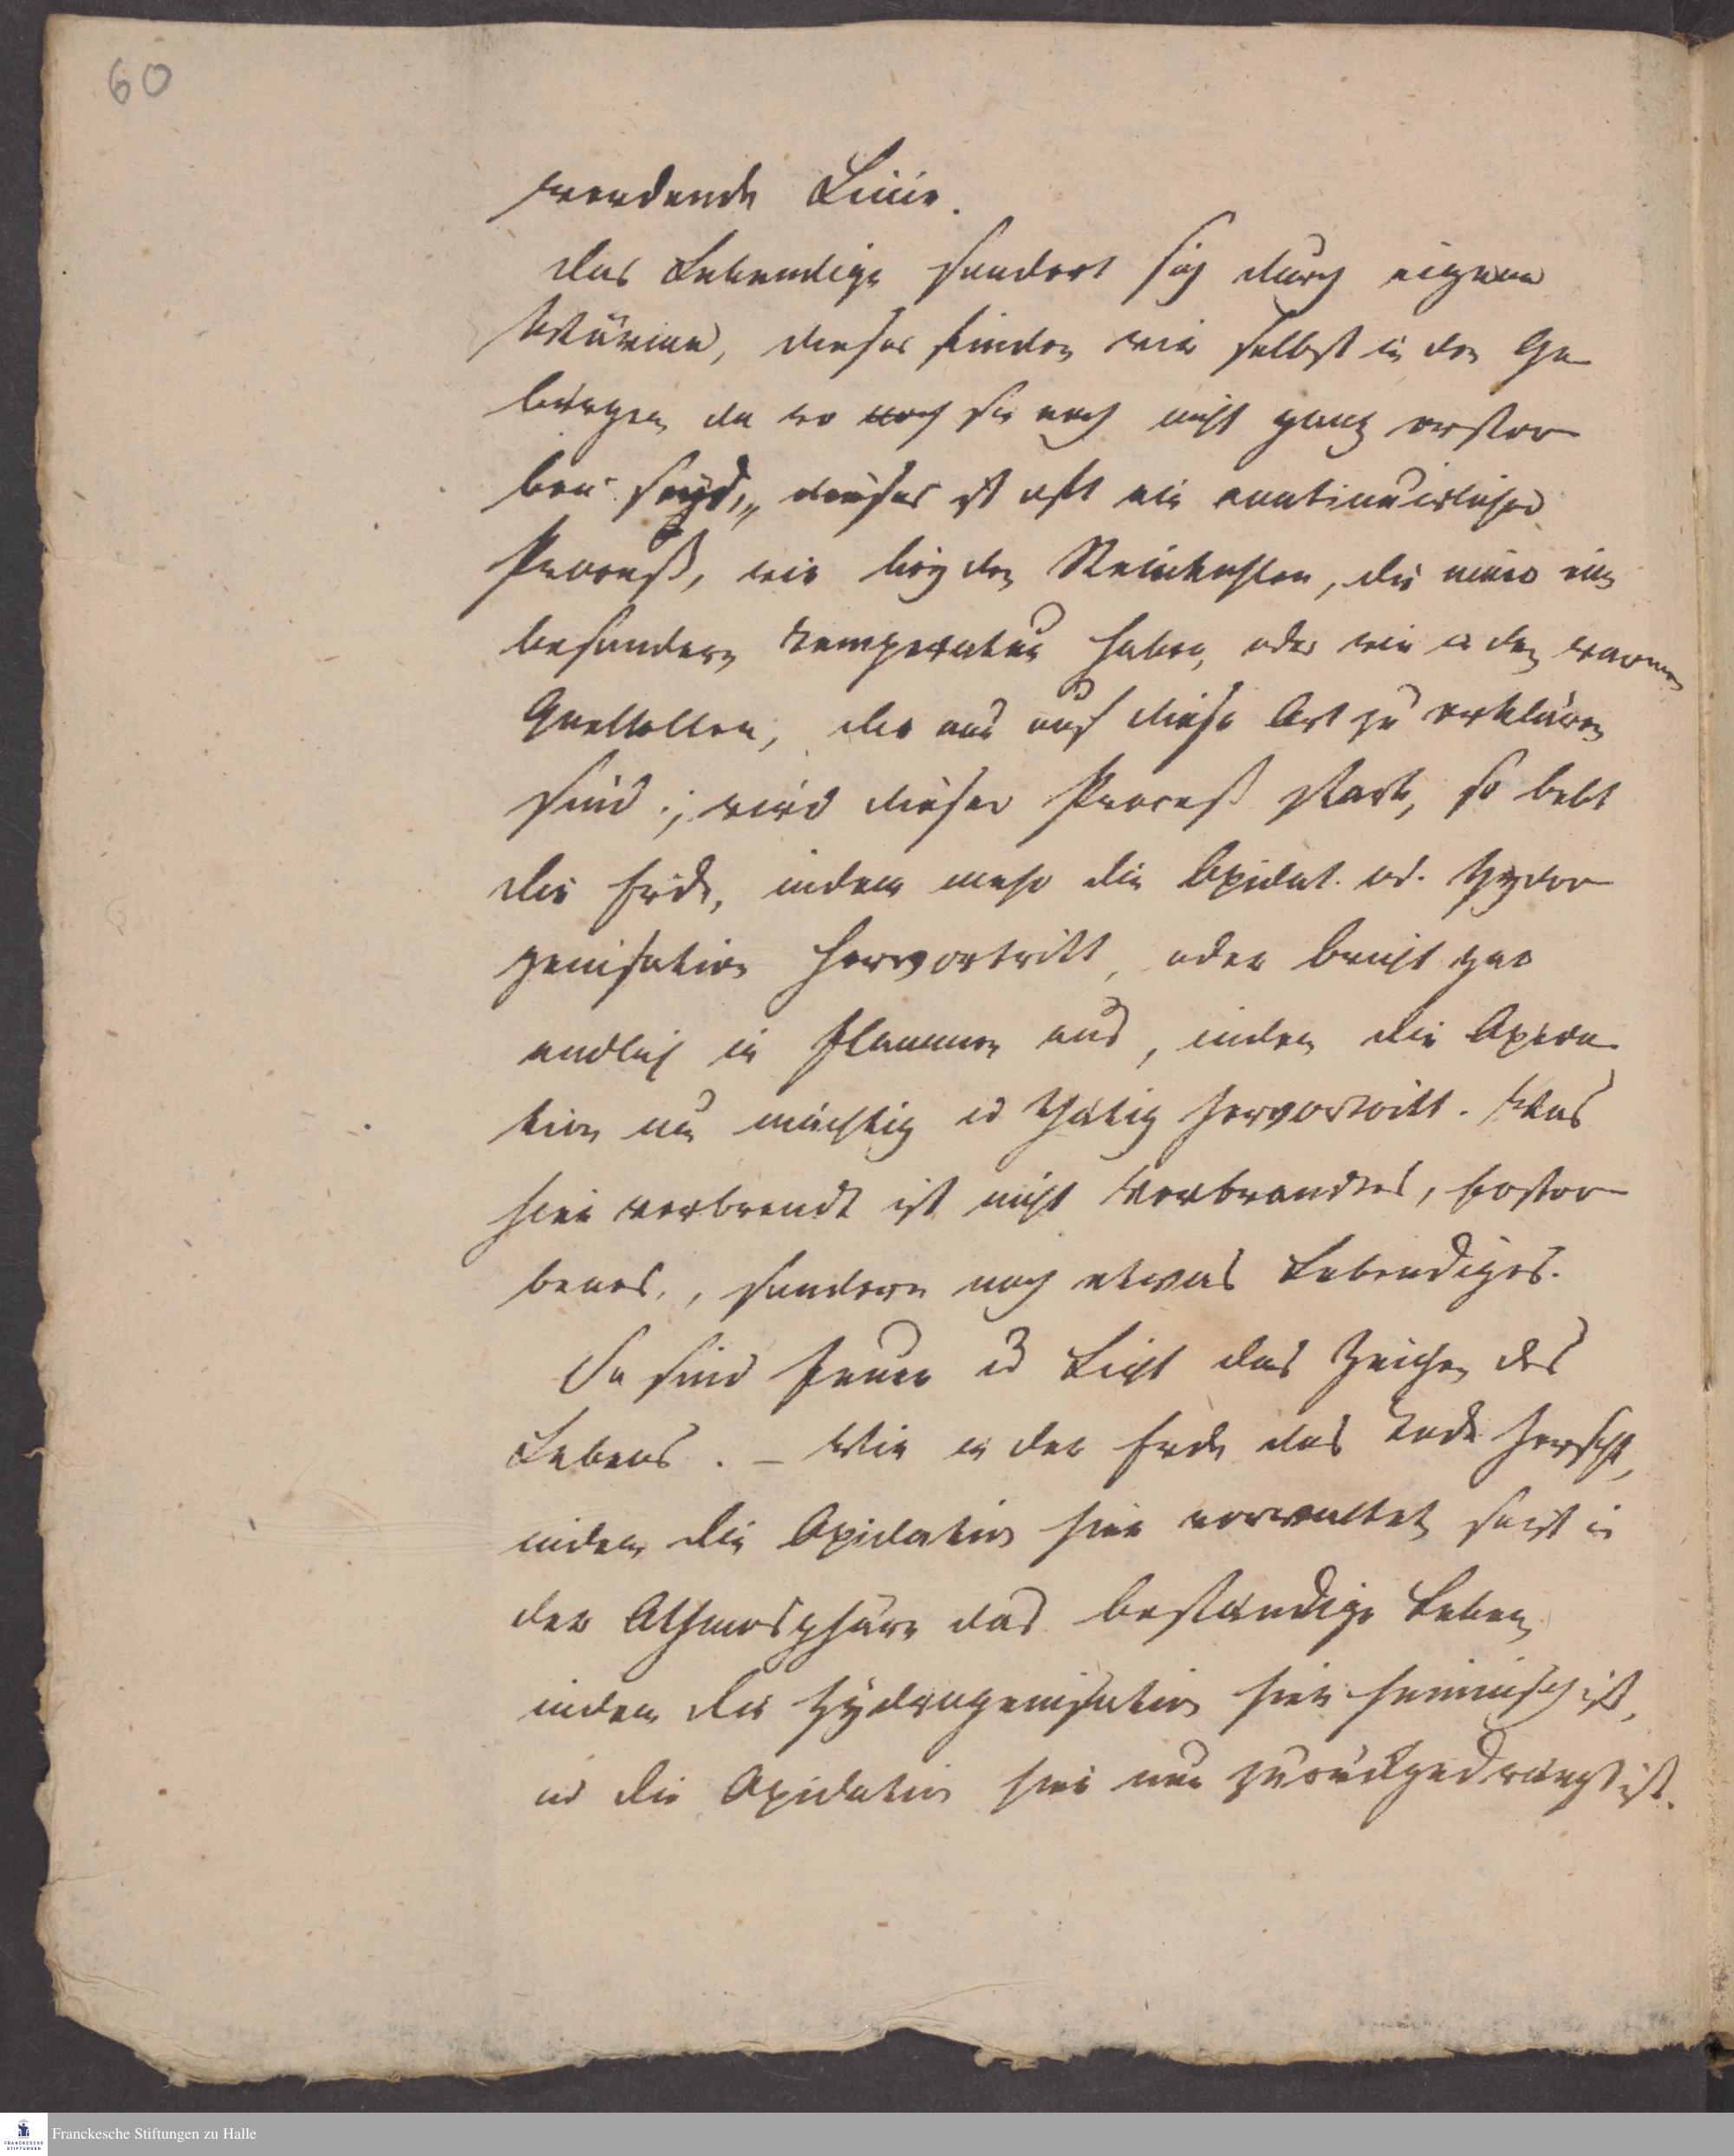 60
werdende Linie.
das Lebendige sondert sich durch eigene
Wärme, dieses finden wir selbst in den Ge
bürgen da wo noch sie noch nicht ganz erstor
ben sind, dieses ist oft ein continuirlicher
Proceß, wie bey den Steinkohlen, die eine
besondere Temperatur haben, oder wie in den warmen
Quellen, die nur auf diese Art zu erklären
sind; wird dieser Proceß stark, so bebt
die Erde, indem mehr die Oxidat. od. Hydro
genisation hervortritt, oder bricht gar
endlich in Flammen aus, indem die Oxyda
tion nun mächtig u thätig hervortritt. Was
hier verbrendt ist nicht Verbrandtes, Erstor
benes, sondern noch etwas Lebendiges.
So sind Feuer u Licht das Zeichen des
Lebens. – Wie in der Erde das Tode herrscht,
indem die Oxidation hier vorwaltet, so ist in
der Athmosphäre das beständige Leben
indem die Hydrogenisation hier heimisch ist,
u die Oxidation hier nur zurückgedrängt ist.
Franckesche Stiftungen zu Halle
FRANCKESCHE STIFTUNGEN